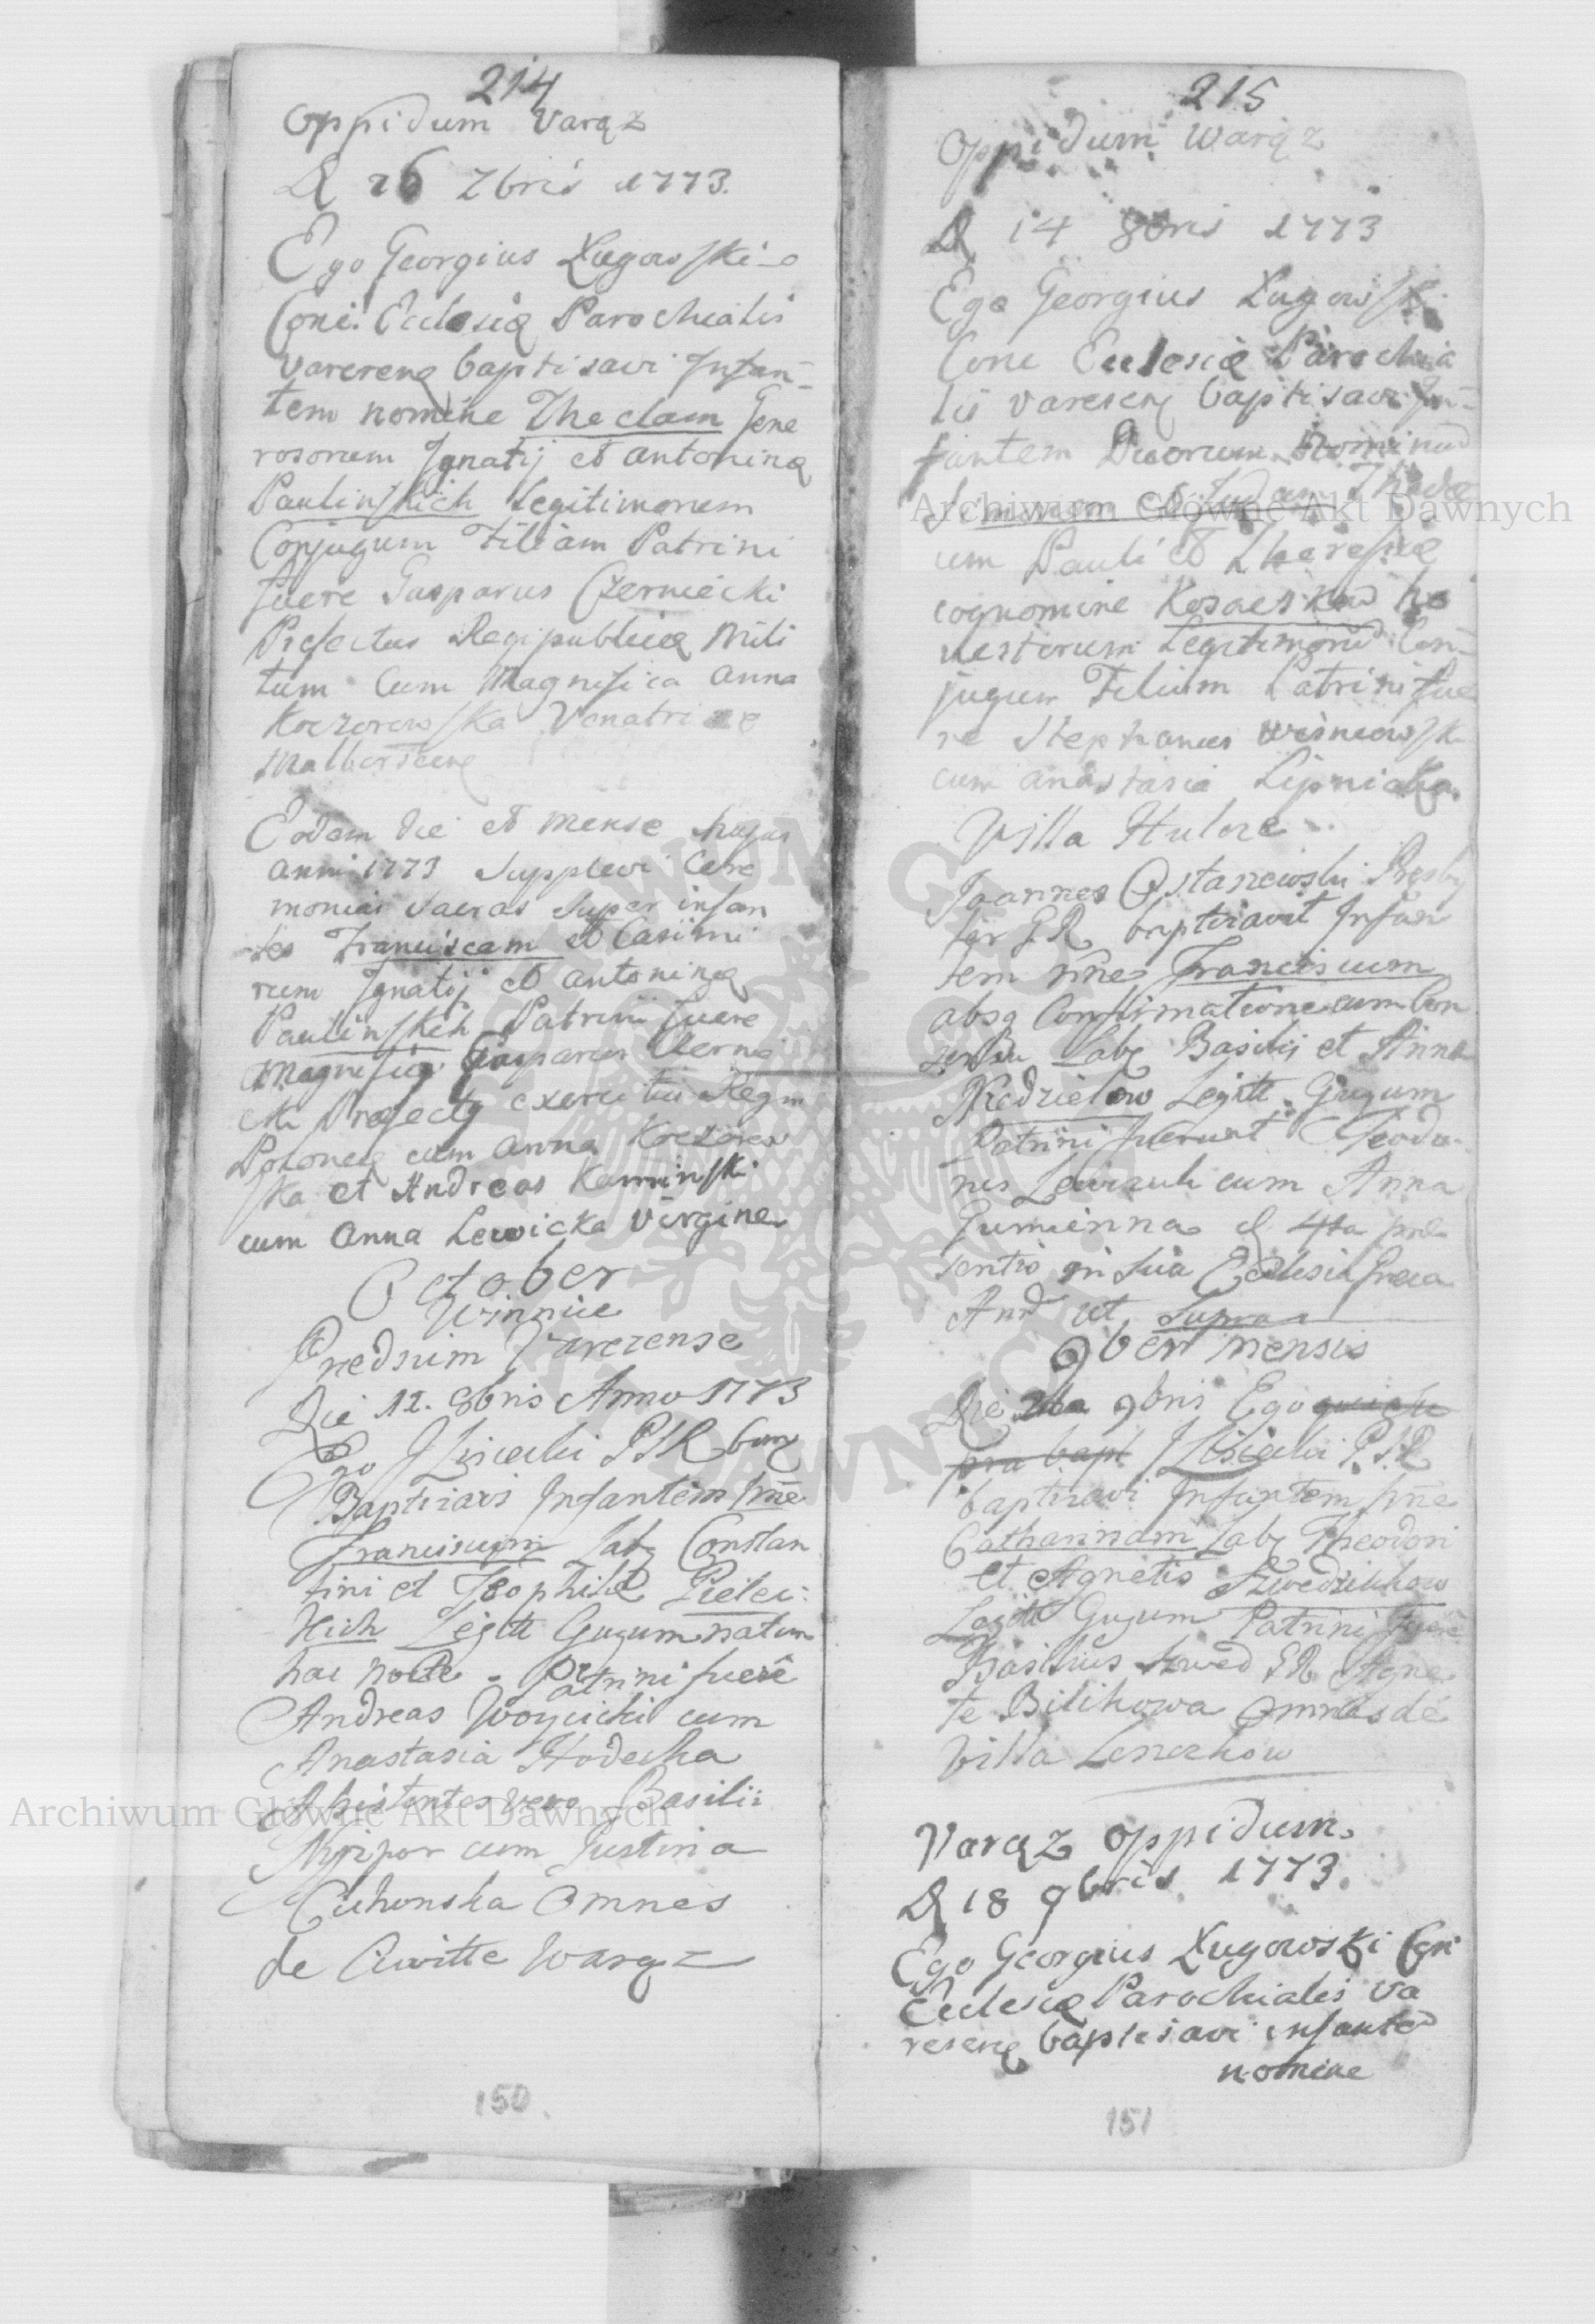 214
Oppidum Varąz
D 26 7bris 1773.
Ego Georgius Ługowski
Coñ. Ecclesię Parochialis
Varerenę baptisavi Infan-
tem nomine Theclam Gene
rosorum Ignatij et Antoninę
Paulinskich Legitimorum
Conjugum Filiam Patrini
fuere Gasparus Czerniecki
Prefectus Regipublicę Mili
tum Cum Magnifica Anna
Koczorowska Venatri
Eodem die et mense hujus
anni 1773 Supplevi Cere
monias Sacras Super infan
tes Franciscam et Casimi
rum Ignatij et Antoninę
Paulinskich Patrini fuere
Magnificg Gasparus Czerni
cki Prefectg exercitus Regni
Polonię cum Anna Koczorow
ska et Andreas Kaminski
cum Anna Lewicka Virgine
October
Winnice
Predium Varezense
Die 12. 8bris Anno 1773
Ego
Baptizavi Infantem Nñe
Franciscum Lab. Constan
tini et Teophile
Legitt Gugum natum
hac nocte. Patrini fuere
Andreas Woycicki cum
Anastasia Hodecka
Assistentes vero Basilii
cum Justina
Cichonska Omnes
de Civitte Warąz
150
215
Oppidum Warąz
D 14 8bris 1773
Ego Georgius Ługowski
Cone Ecclesię Parochia
lis Vareseng baptisavi In-
fantem Duorum Nominum
Simonem et Judam Thade
um Pauli et Theresię
cognomine ho
nestorum Legitimorum Con-
jugum Filium Patrini fue
re Stephanus Wisniowski
cum Anastasia Lipnicka.
Villa Hulcze
Joannes Ostanewski Presby
ter G.R. baptizavit Infan
tem Nñe Franciscum
absq Confirmatione cum Con
sensu Lab. Basilij et Anna
Niedzielow Legitt. Gugum
Patrini fuerunt Theodo-
rus cum Anna
Gumienna d. 4ta pre
sentis in sua Ecclesia Greca
Anno ut Supra
9ber mensis
Die 9bris Ego
pra bapt P.S.R
baptizavi Infantem Nñe
Catharinam Lab. Theodori
et Agnetis
Legitt Gugum Patrini fuere
Basilius Szwed GR Agne
te Bilikowa Omnes de
Villa Leszczkow
Varąz oppidum.
D 18 9bris 1773.
Ego Georgius Ługowski Coñ
Eclesię Parochialis Va
reserę baptisavi infante
nomine
151
Archiwum Główne Akt Dawnych
Archiwum Główne Akt Dawnych